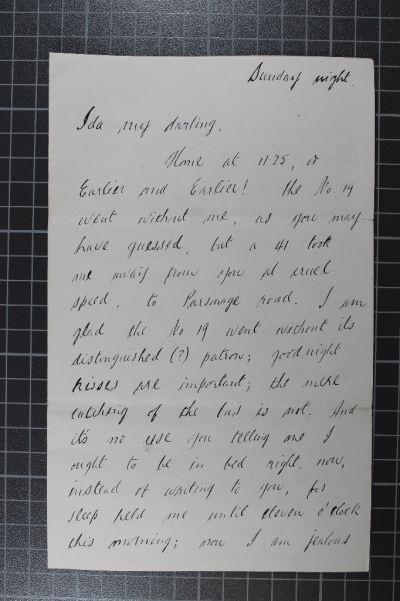 Sunday night.
Ida my darling,
Home at 11.25, or
Earlier and Earlier! The No. 19
went without me, as you may
have guessed, but a 41 took
me away from you at cruel
speed, to Parsonage Road. I am
glad the No 19 went without its
distinguished (?) patron; good-night
kisses are important; the mere
catching of the bus is not. And
it's no use you telling me I
ought to be in bed right now,
instead of writing to you, for
sleep held me until eleven o'clock
this morning; now I am jealous